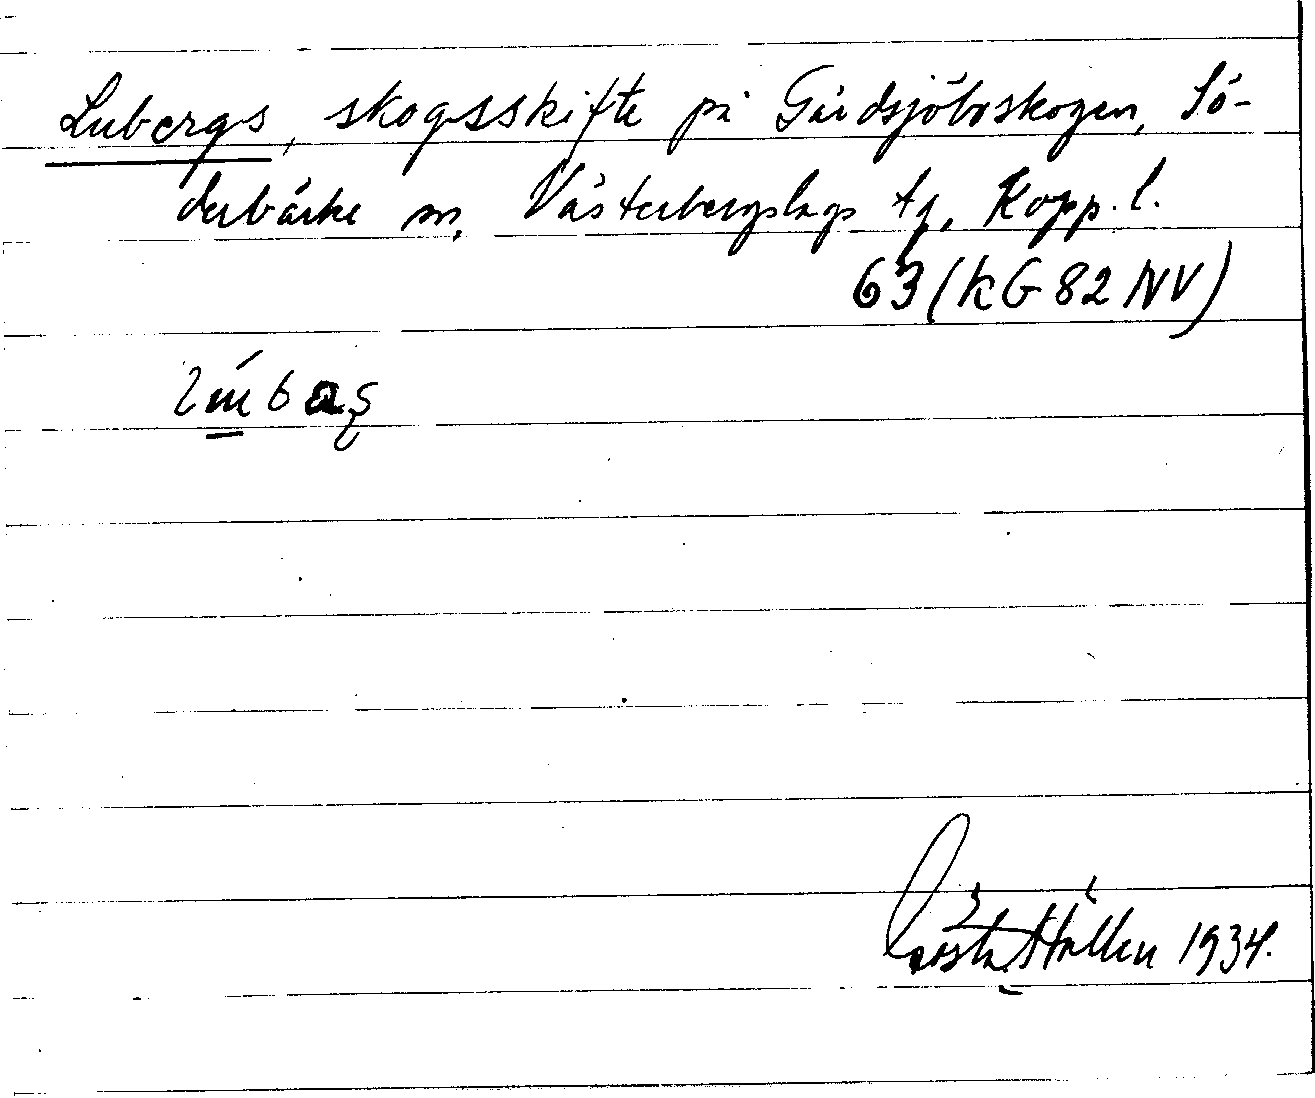 Lubergs, skogsskifte på Gårdsjöboskogen, Sö-
derbärke sn, Västerbergslags tg, Kopp. l.
63 (KG 82 NV)
Gösta Hållén 1934.